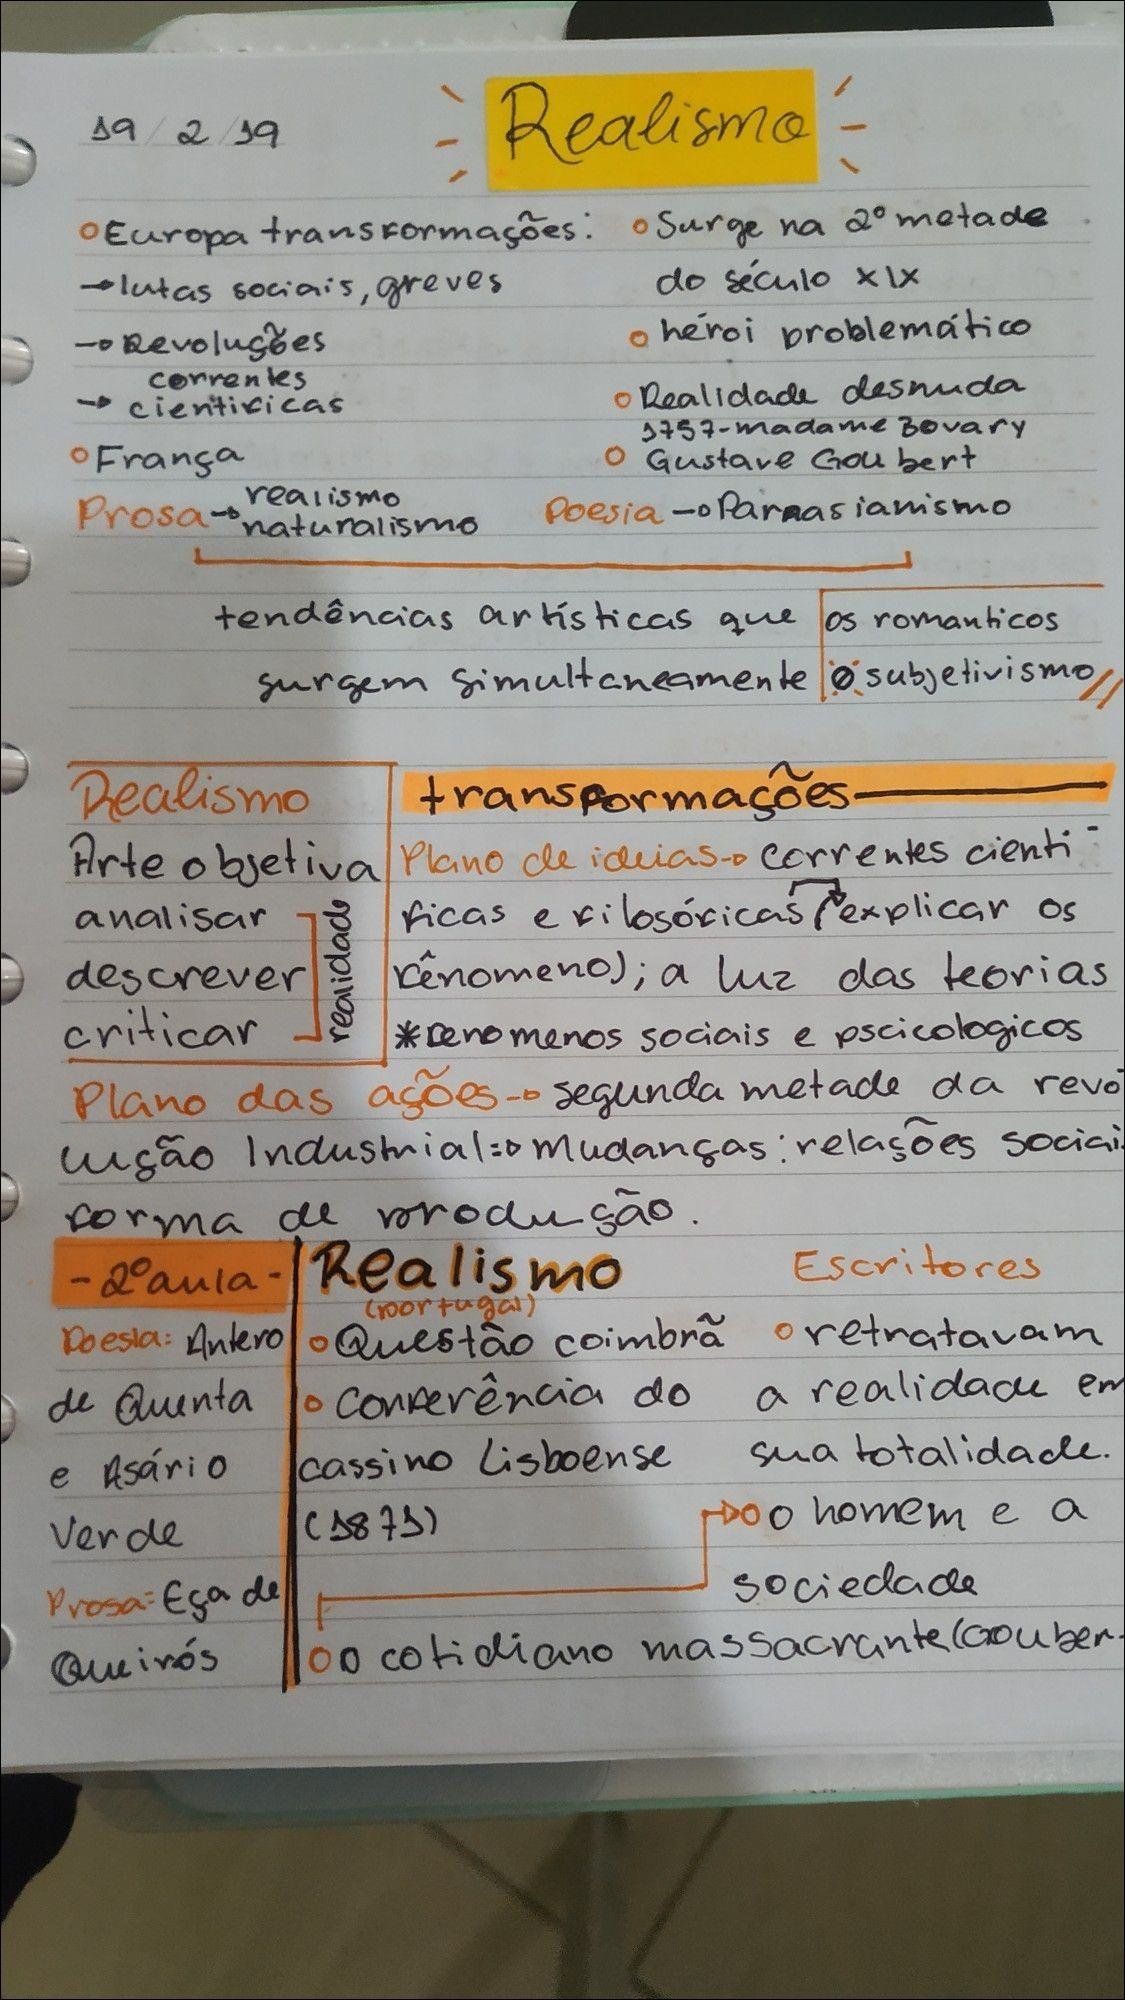 19/2/19
Realismo
Europa transformações:
→ lutas sociais, greves
→ Revoluções
correntes
→ cientificas
França
Surge na 2º metade
do século XIX
héroi problemático
Realidade desnuda
1757-madame Bovary
Gustave Goubert
Prosa → realismo
naturalismo
Poesia → Parnasianismo
tendências artísticas que
surgem simultaneamente
os romanticos
Ø subjetivismo //
Realismo
Arte objetiva
analisar
descrever
criticar
realidade
transformações
Plano de ideias → correntes cienti-
ficas e filosóficas (explicar os
fênomeno); a luz das teorias
*fenomenos sociais e pscicologicos
Plano das ações → segunda metade da revo
lução Industrial => Mudanças: relações sociai
forma de produção.
-2º aula-
Poesia: Antero
de Quenta
e Asário
Verde
Prosa: Eça de
Queirós
Realismo
(portugal)
Questão coimbrã
Conferência do
cassino Lisboense
(1871)
Escritores
retratavam
a realidade em
sua totalidade.
o homem e a
sociedade
o cotidiano massacrante (Gouber-